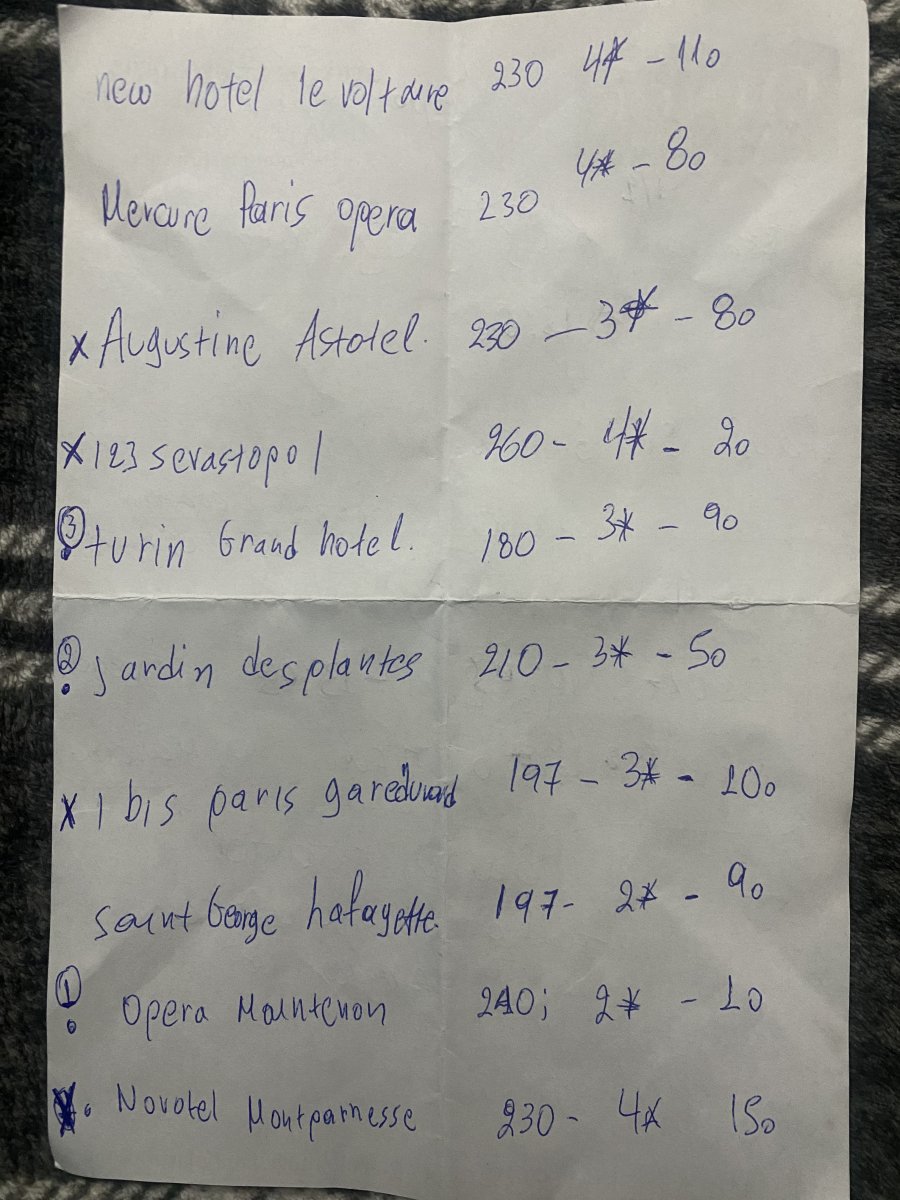 new hotel le voltaire 230 4* - 110
Mercure Paris opera 230 4* - 80
x Augustine Astotel. 230 - 3* - 80
x 123 sevastopol 260 - 4* - 20
3 turin Grand hotel. 180 - 3* - 90
2 jardin desplantes 210 - 3* - 50
x Ibis paris gare 197 - 3* - 100
saint George Lafayette. 197 - 2* - 90
1 Opera Maintenon 210; 2* - 10
Novotel Montparnesse 230 - 4* 150